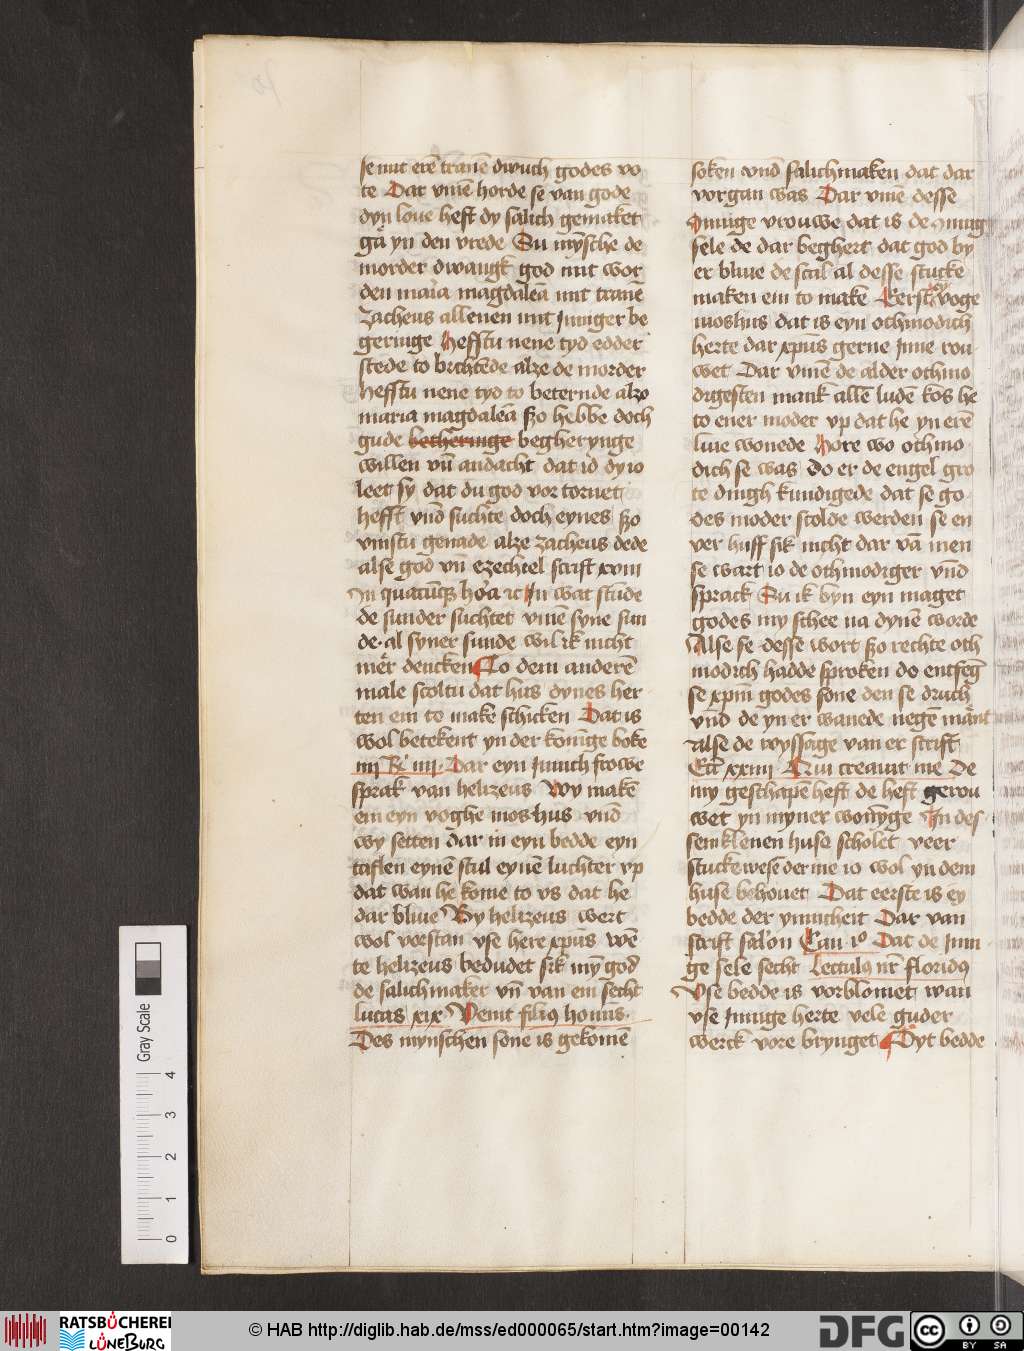 se mit erē tranē dwuch godes vo
te Dar vmē horde se van gode
dyn loue heft dy salich gemaket
gā yn den vrede Su mȳsche de
morder dwangk god mit wor
den maria magdalēa mit tranē
zacheus allenen mit Jnniger be
geringe Hefftu nene tyd edder
stede to bichtēde alze de morder
Hefftu nene tyd to beternde alzo
maria magdalēa szo hebbe doch
gude betheringe begherynge
willen vn̄ andacht dat id dy io
leet sy dat du god vor tornet
hefft vnd suchte doch eynes szo
vinstu genade alze zacheus dede
alse god vn̄ ezechiel scrift xviii
In quacūqȝ hora ꝛc In wat stūde
de sunder suchtet vmē syne sun
de al syner sunde wil ik nicht
mēr dencken To dem anderē
male scoltu dat hus dynes her
ten em to make schicken Dat is
wol betekent yn der konīge boke
iiij R iiij Dar eyn Jnnich frowe
sprak van helizeus Wy makē
em eyn voghe moshus vnd
wy setten dar in eyn bedde eyn
taflen eynē stul eynē luchter vp
dat wan he kome to vs dat he
dar bliue By helizeus wert
wol vorstan vse here xpūs wē
te helizeus bedudet sik myn god
de salichmaker vn̄ van em secht
lucas xix Venit filiꝰ homīs
Des mynschen sone is gekomē
soken vnd salichmaken dat dar
vorgan was Dar vmē desse
Jnnige vrouwe dat is de Jnnig
sele de dar beghert dat god by
er bliue de scal al desse stucke
maken em to make Eerst eȳ voge
moshus dat is eyn othmodich
herte dar xpūs gerne Jnne rou
wet Dar vmē de alder othmo
digesten mank allē ludē kos he
to ener moder vp dat he yn erē
liue wonede Hore wo othmo
dich se was Do er de engel gro
te dingh kundigede dat se go
des moder scolde werden se en
ver huff sik nicht dar vā men
se wart io de othmodiger vnd
sprack Su ik byn eyn maget
godes my schee na dynē worde
Alse se desse wort szo rechte oth
modich hadde sproken do entfeng
se xpm̄ godes sone den se druch
vnd de yn er wanede negē mānt
alse de wyssage van er scrift
Ecc̄ xxiiij Qui creauit me De
my geschapē heft de heft gerou
wet yn myner wonȳge In des
sem klenen huse scholet veer
stucke wesē der me io wol yn dem
huse behouet Dat eerste is ey
bedde der ynnicheit Dar van
scrift salon Can i° Dat de Jnni
ge sele secht Lectulꝰ nr̄ floridꝰ
Vse bedde is vorblomet wan
vse Jnnige herte vele guder
werck vore brynget Dyt bedde
Gray Scale
4
3
2
1
0
RATSBÜCHEREI
LÜNEBURG
© HAB http://diglib.hab.de/mss/ed000065/start.htm?image=00142
DFG
cc
BY SA